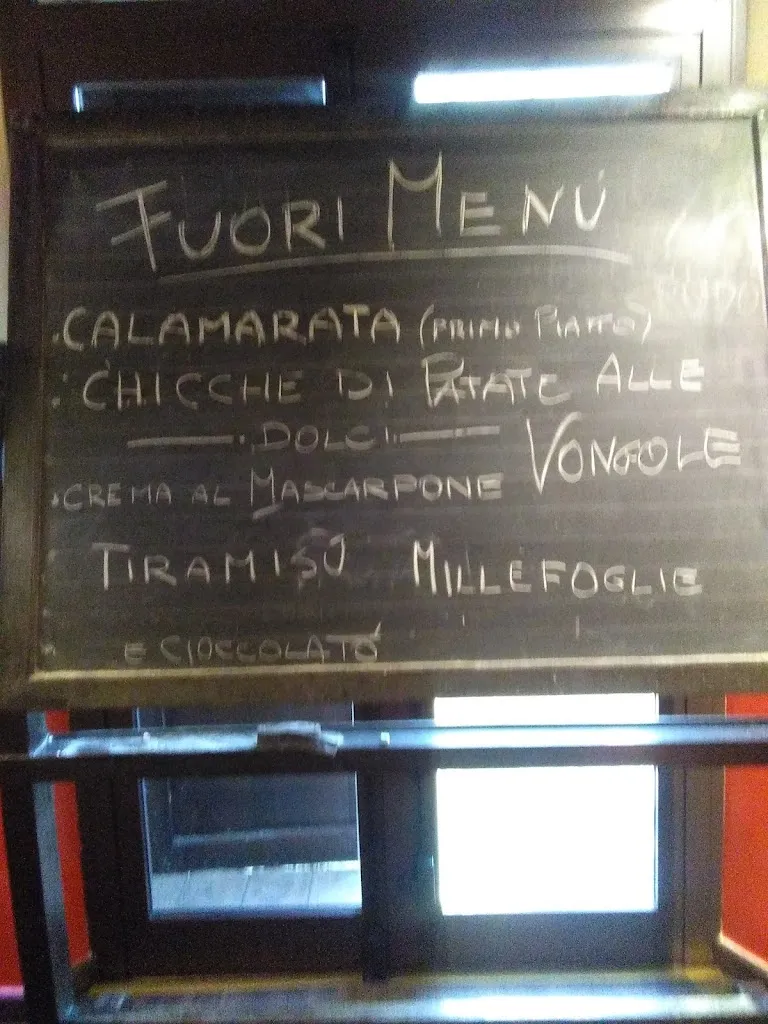 FUORI MENÚ
• CALAMARATA (PRIMO PIATTO)
• CHICCHE DI PATATE ALLE
VONGOLE
DOLCI
• CREMA AL MASCARPONE
TIRAMISÚ MILLEFOGLIE
E CIOCCOLATO